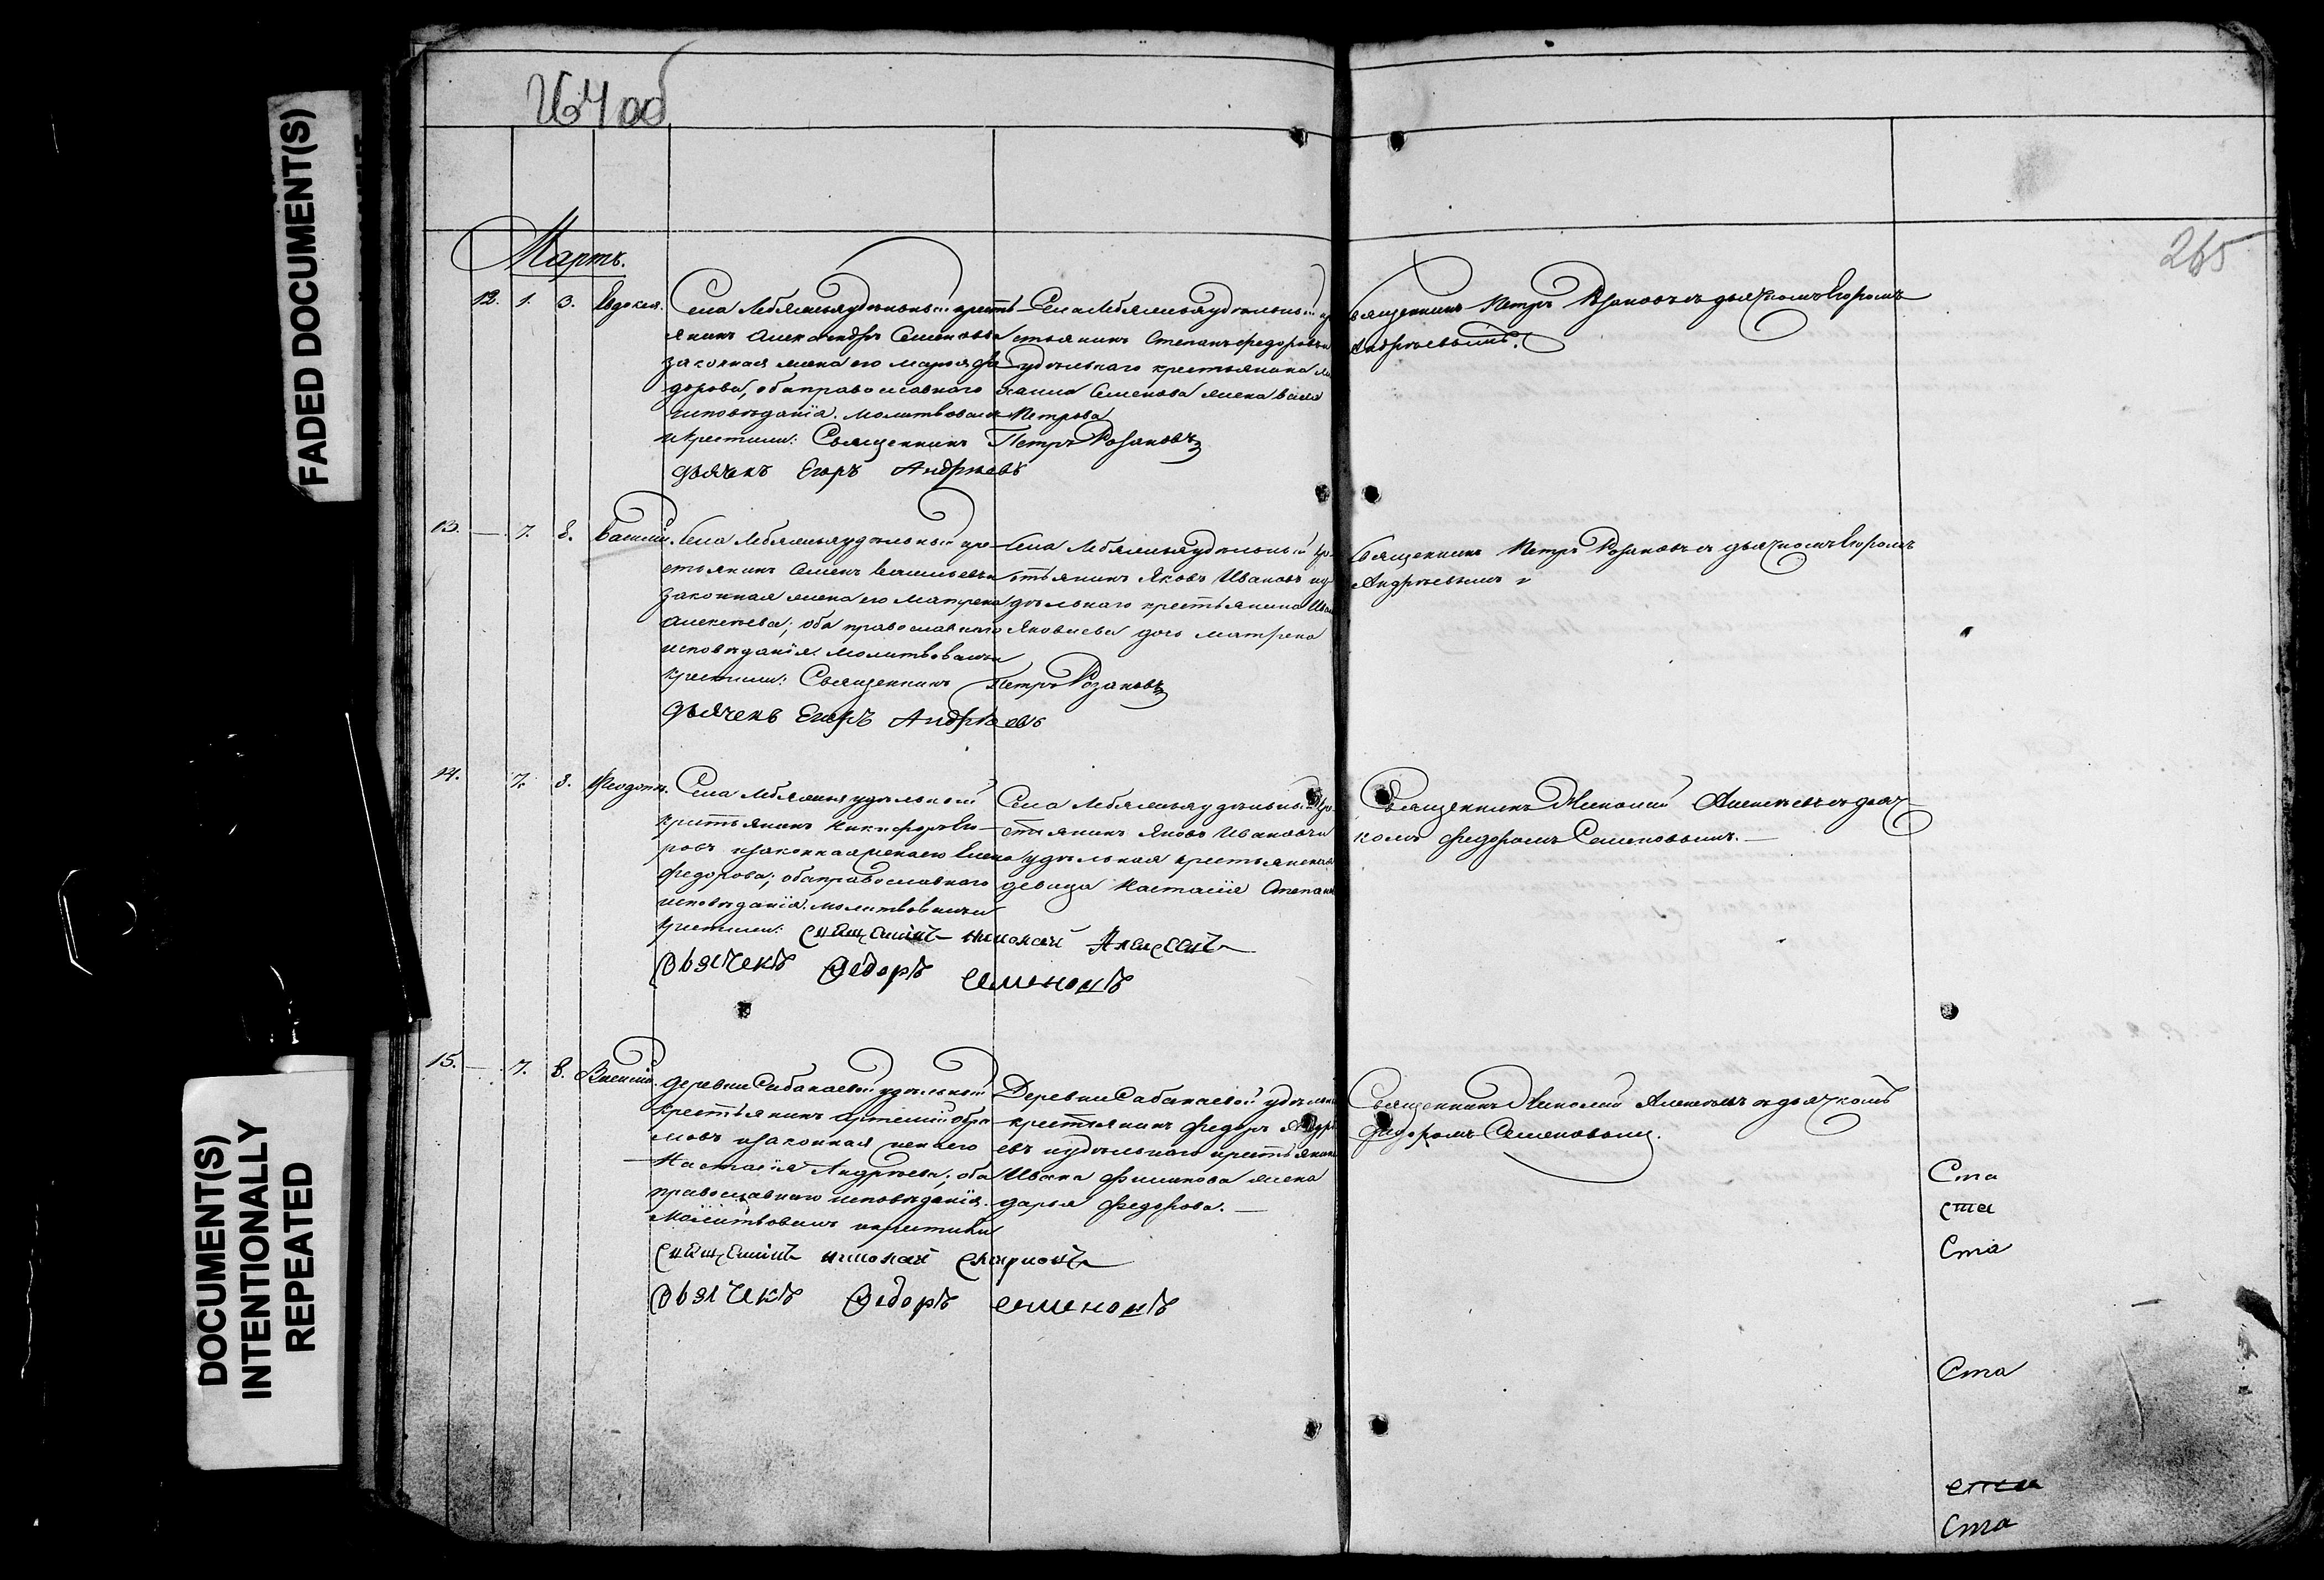 FADED DOCUMENT(S)
DOCUMENT(S)
INTENTIONALLY
REPEATED
264 об
265
Мартъ.
12. 1. 3. Евдокея.
Села Лебяжья удѣльный кресть-
янинъ Александръ Семеновъ и
законная жена его Марья Фе-
дорова, оба православнаго
исповѣданія. Молитвовали
и крестили: Священникъ Петръ Розановъ
дьячекъ Егоръ Андреевъ
Села Лебяжья удѣльный кр
стьянинъ Степанъ Федоровъ и
удѣльнаго крестьянина
Семенова жена
Петрова
Священникъ Петръ Розановъ съ дьячкомъ Егоромъ
Андреевымъ.
13. — 7. 8. Василій.
Села Лебяжья удѣльный кре-
стьянинъ Семенъ Васильевъ и
законная жена его Матрена
Алексѣева; оба православнаго
исповѣданія. Молитвовали и
крестили: Священникъ Петръ Розановъ
дьячекъ Егоръ Андреевъ
Села Лебяжья удѣльный кре-
стьянинъ Яковъ Ивановъ и уд
дѣльнаго крестьянина Ива
Яковлева дочь Матрена
Священникъ Петръ Розановъ съ дьячкомъ Егоромъ
Андреевымъ
14. 7. 8. Феодотъ.
Села Лебяжья удѣльный
крестьянинъ Никифоръ Его-
ровъ и законная жена его Елена
Федорова; оба православнаго
исповѣданія. Молитвовали и
крестили: Священникъ Николай Алексеевъ
дьячекъ Федоръ Семеновъ
Села Лебяжья удѣльный кре-
стьянинъ Яковъ Ивановъ и
удѣльная крестьянская
девица Настасія Степан
Священникъ Николай Алексѣевъ съ дьяч-
комъ Федоромъ Семеновымъ. —
15. — 7. 8. Василій.
Деревни Сабакаевой удѣльный
крестьянинъ Артемій Абра
мовъ и законная жена его
Настасія Андреева; оба
православнаго исповѣданія.
Молитвовали и крестили
Священникъ Николай Смирновъ
дьячекъ Федоръ Семеновъ
Деревни Сабакаевой удѣльный
крестьянинъ Федоръ Андре
евъ и удѣльнаго крестьянина
Ивана Филипова жена
Дарья Федорова. —
Священникъ Николай Алексѣевъ съ дьячкомъ
Федоромъ Семеновымъ.
Ста
ста
Ста
Ста
Ста